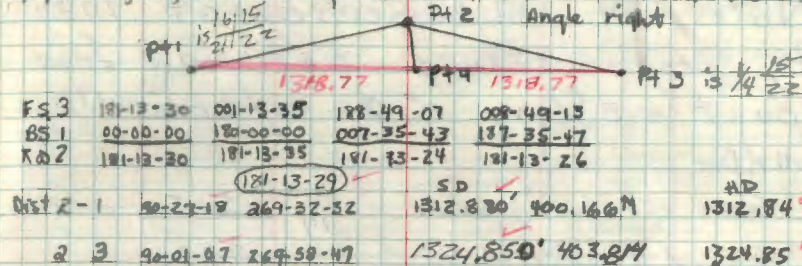 Pt 2 Angle right
16|15
is 21|22
Pt 1
1318.77 Pt 4 1318.77 Pt 3 is 1/4 15/22
FS 3 181-13-30 001-13-35 188-49-07 008-49-13
BS 1 00-00-00 180-00-00 007-35-43 187-35-47
⊼@2 181-13-30 181-13-35 181-13-24 181-13-26
181-13-29 SD HD
Dist 2-1 90-27-18 269-32-32 1312.880' 400.166M 1312.84
2 3 90-01-07 269-58-47 1324.850' 403.81M 1324.85